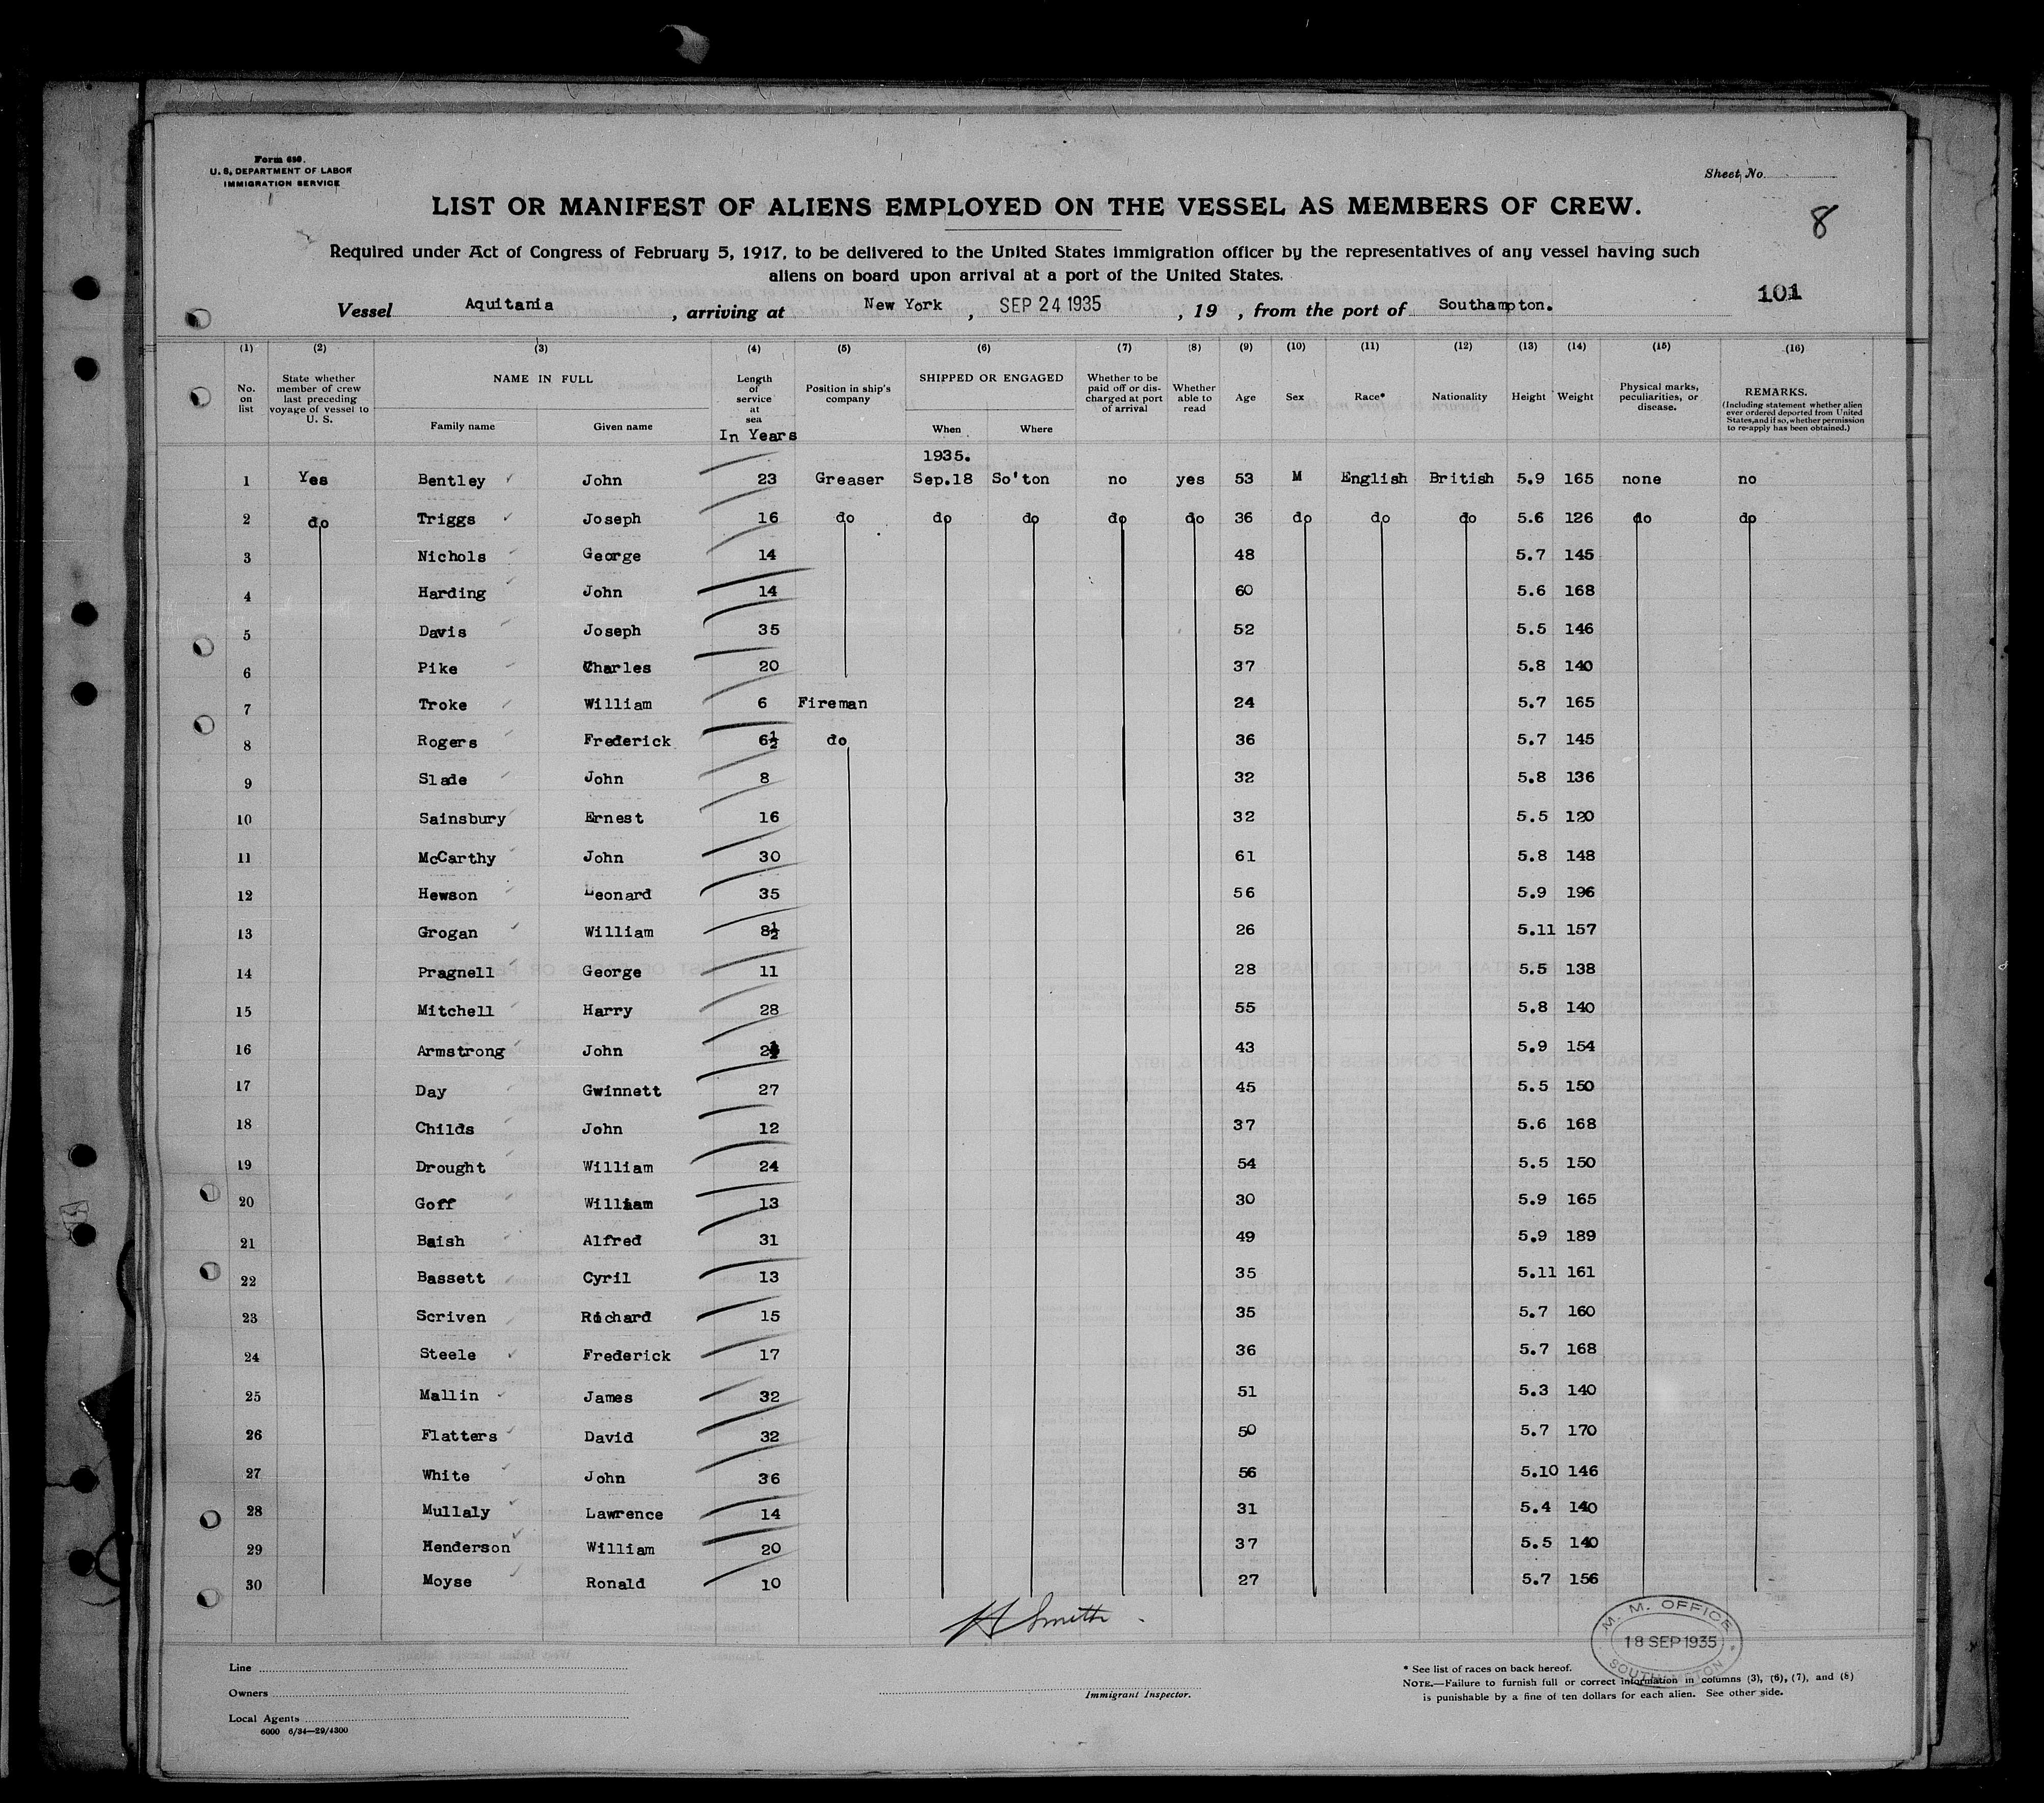 Form 680.
U. S. DEPARTMENT OF LABOR
IMMIGRATION SERVICE
Sheet No.
LIST OR MANIFEST OF ALIENS EMPLOYED ON THE VESSEL AS MEMBERS OF CREW.
8
Required under Act of Congress of February 5, 1917, to be delivered to the United States immigration officer by the representatives of any vessel having such
aliens on board upon arrival at a port of the United States.
101
Vessel Aquitania , arriving at New York , SEP 24 1935 , 19 , from the port of Southampton.
(1) (2) (3) (4) (5) (6) (7) (8) (9) (10) (11) (12) (13) (14) (15) (16)
No. on list
State whether member of crew last preceding voyage of vessel to U. S.
NAME IN FULL
Family name
Given name
Length of service at sea
In Years
Position in ship's company
SHIPPED OR ENGAGED
When
Where
Whether to be paid off or discharged at port of arrival
Whether able to read
Age
Sex
Race*
Nationality
Height
Weight
Physical marks, peculiarities, or disease.
REMARKS.
(Including statement whether alien ever ordered deported from United States, and if so, whether permission to re-apply has been obtained.)
1935.
1 Yes Bentley John 23 Greaser Sep.18 So'ton no yes 53 M English British 5.9 165 none no
2 do Triggs Joseph 16 do do do do do 36 do do do 5.6 126 do do
3 Nichols George 14 48 5.7 145
4 Harding John 14 60 5.6 168
5 Davis Joseph 35 52 5.5 146
6 Pike Charles 20 37 5.8 140
7 Troke William 6 Fireman 24 5.7 165
8 Rogers Frederick 6½ do 36 5.7 145
9 Slade John 8 32 5.8 136
10 Sainsbury Ernest 16 32 5.5 120
11 McCarthy John 30 61 5.8 148
12 Hewson Leonard 35 56 5.9 196
13 Grogan William 8½ 26 5.11 157
14 Pragnell George 11 28 5.5 138
15 Mitchell Harry 28 55 5.8 140
16 Armstrong John 43 5.9 154
17 Day Gwinnett 27 45 5.5 150
18 Childs John 12 37 5.6 168
19 Drought William 24 54 5.5 150
20 Goff William 13 30 5.9 165
21 Baish Alfred 31 49 5.9 189
22 Bassett Cyril 13 35 5.11 161
23 Scriven Richard 15 35 5.7 160
24 Steele Frederick 17 36 5.7 168
25 Mallin James 32 51 5.3 140
26 Flatters David 32 50 5.7 170
27 White John 36 56 5.10 146
28 Mullaly Lawrence 14 31 5.4 140
29 Henderson William 20 37 5.5 140
30 Moyse Ronald 10 27 5.7 156
H Smith
M. M. OFFICE
18 SEP 1935
SOUTHAMPTON
Line
Owners
Local Agents
6000 6/34—29/4300
Immigrant Inspector.
* See list of races on back hereof.
NOTE.—Failure to furnish full or correct information in columns (3), (6), (7), and (8)
is punishable by a fine of ten dollars for each alien. See other side.